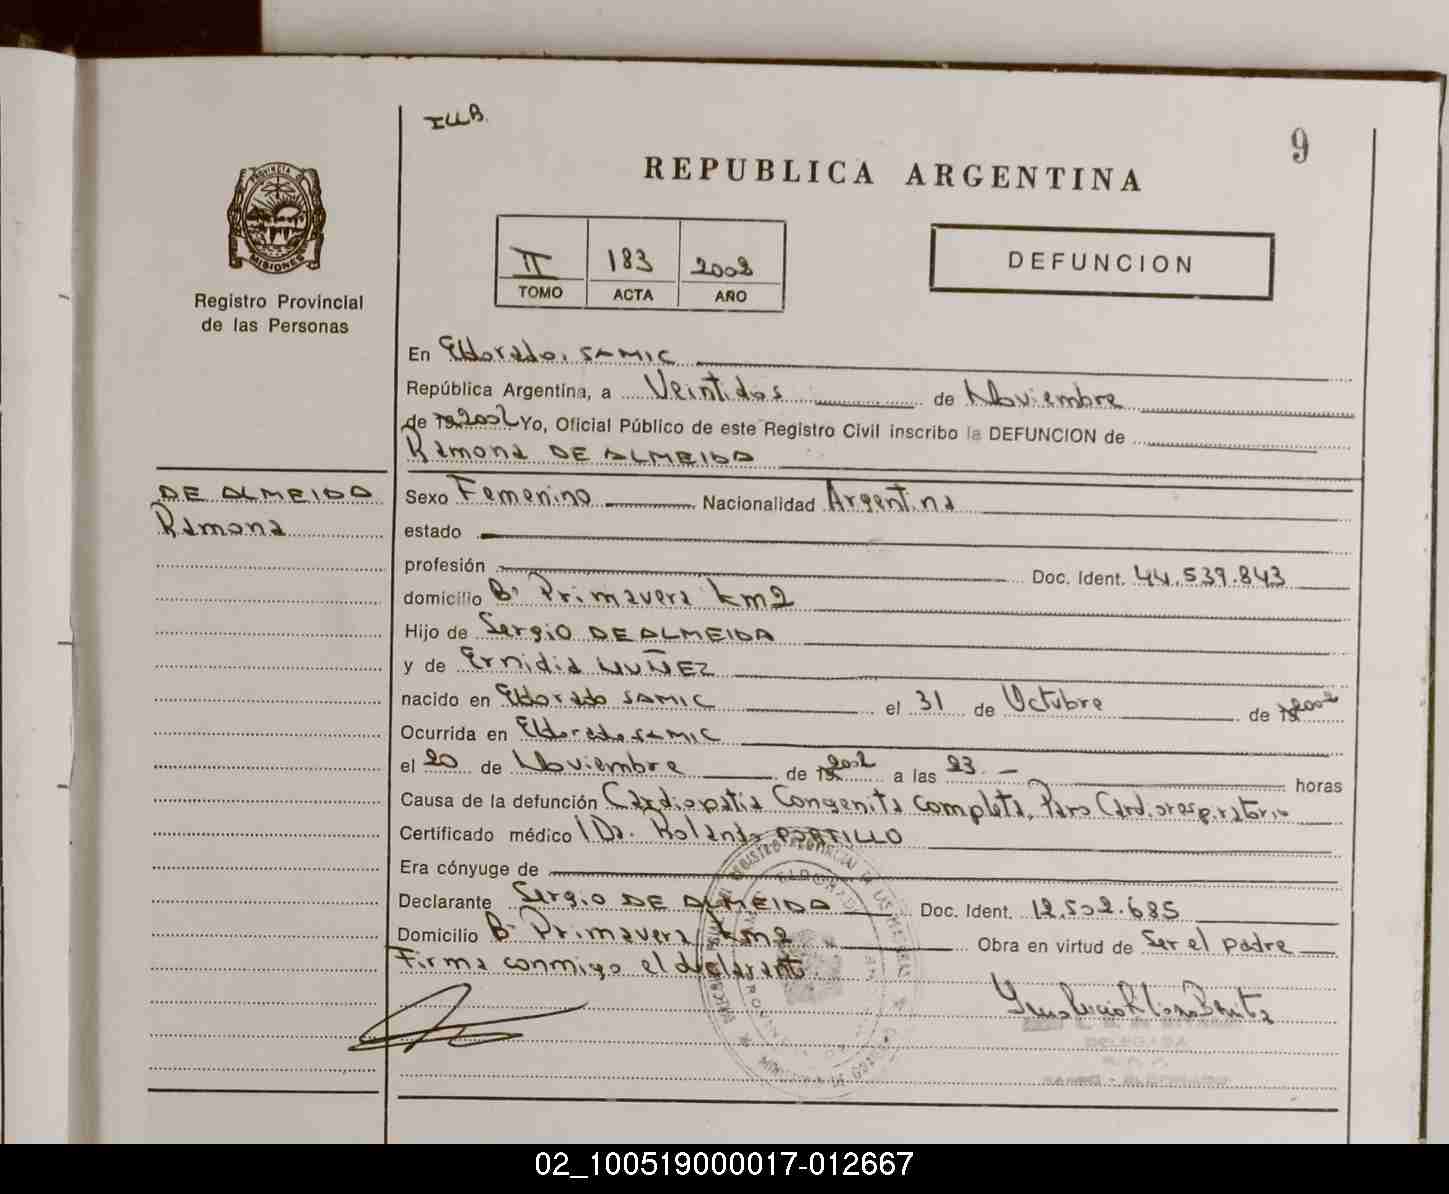 ILLB.
9
REPUBLICA ARGENTINA
PROVINCIA DE
MISIONES
Registro Provincial
de las Personas
II 183 2002
TOMO ACTA AÑO
DEFUNCION
En Eldorado, SAMIC
República Argentina, a Veintidos de Noviembre
de 19 2002 Yo, Oficial Público de este Registro Civil inscribo la DEFUNCION de
Ramona DE ALMEIDA
DE ALMEIDA
Ramona
Sexo Femenino Nacionalidad Argentina
estado
profesión Doc. Ident. 44.539.843
domicilio Bº Primavera km2
Hijo de Sergio DE ALMEIDA
y de Ernidia NUÑEZ
nacido en Eldorado SAMIC el 31 de Octubre de 19 2002
Ocurrida en Eldorado SAMIC
el 20 de Noviembre de 19 2002 a las 23.- horas
Causa de la defunción Cardiopatia Congenita completa, Paro Cardiorespiratorio
Certificado médico Dr. Rolando PORTILLO
Era cónyuge de
Declarante Sergio DE ALMEIDA Doc. Ident. 12.502.685
Domicilio Bº Primavera km2 Obra en virtud de Ser el padre
Firma conmigo el declarante.
02_100519000017-012667